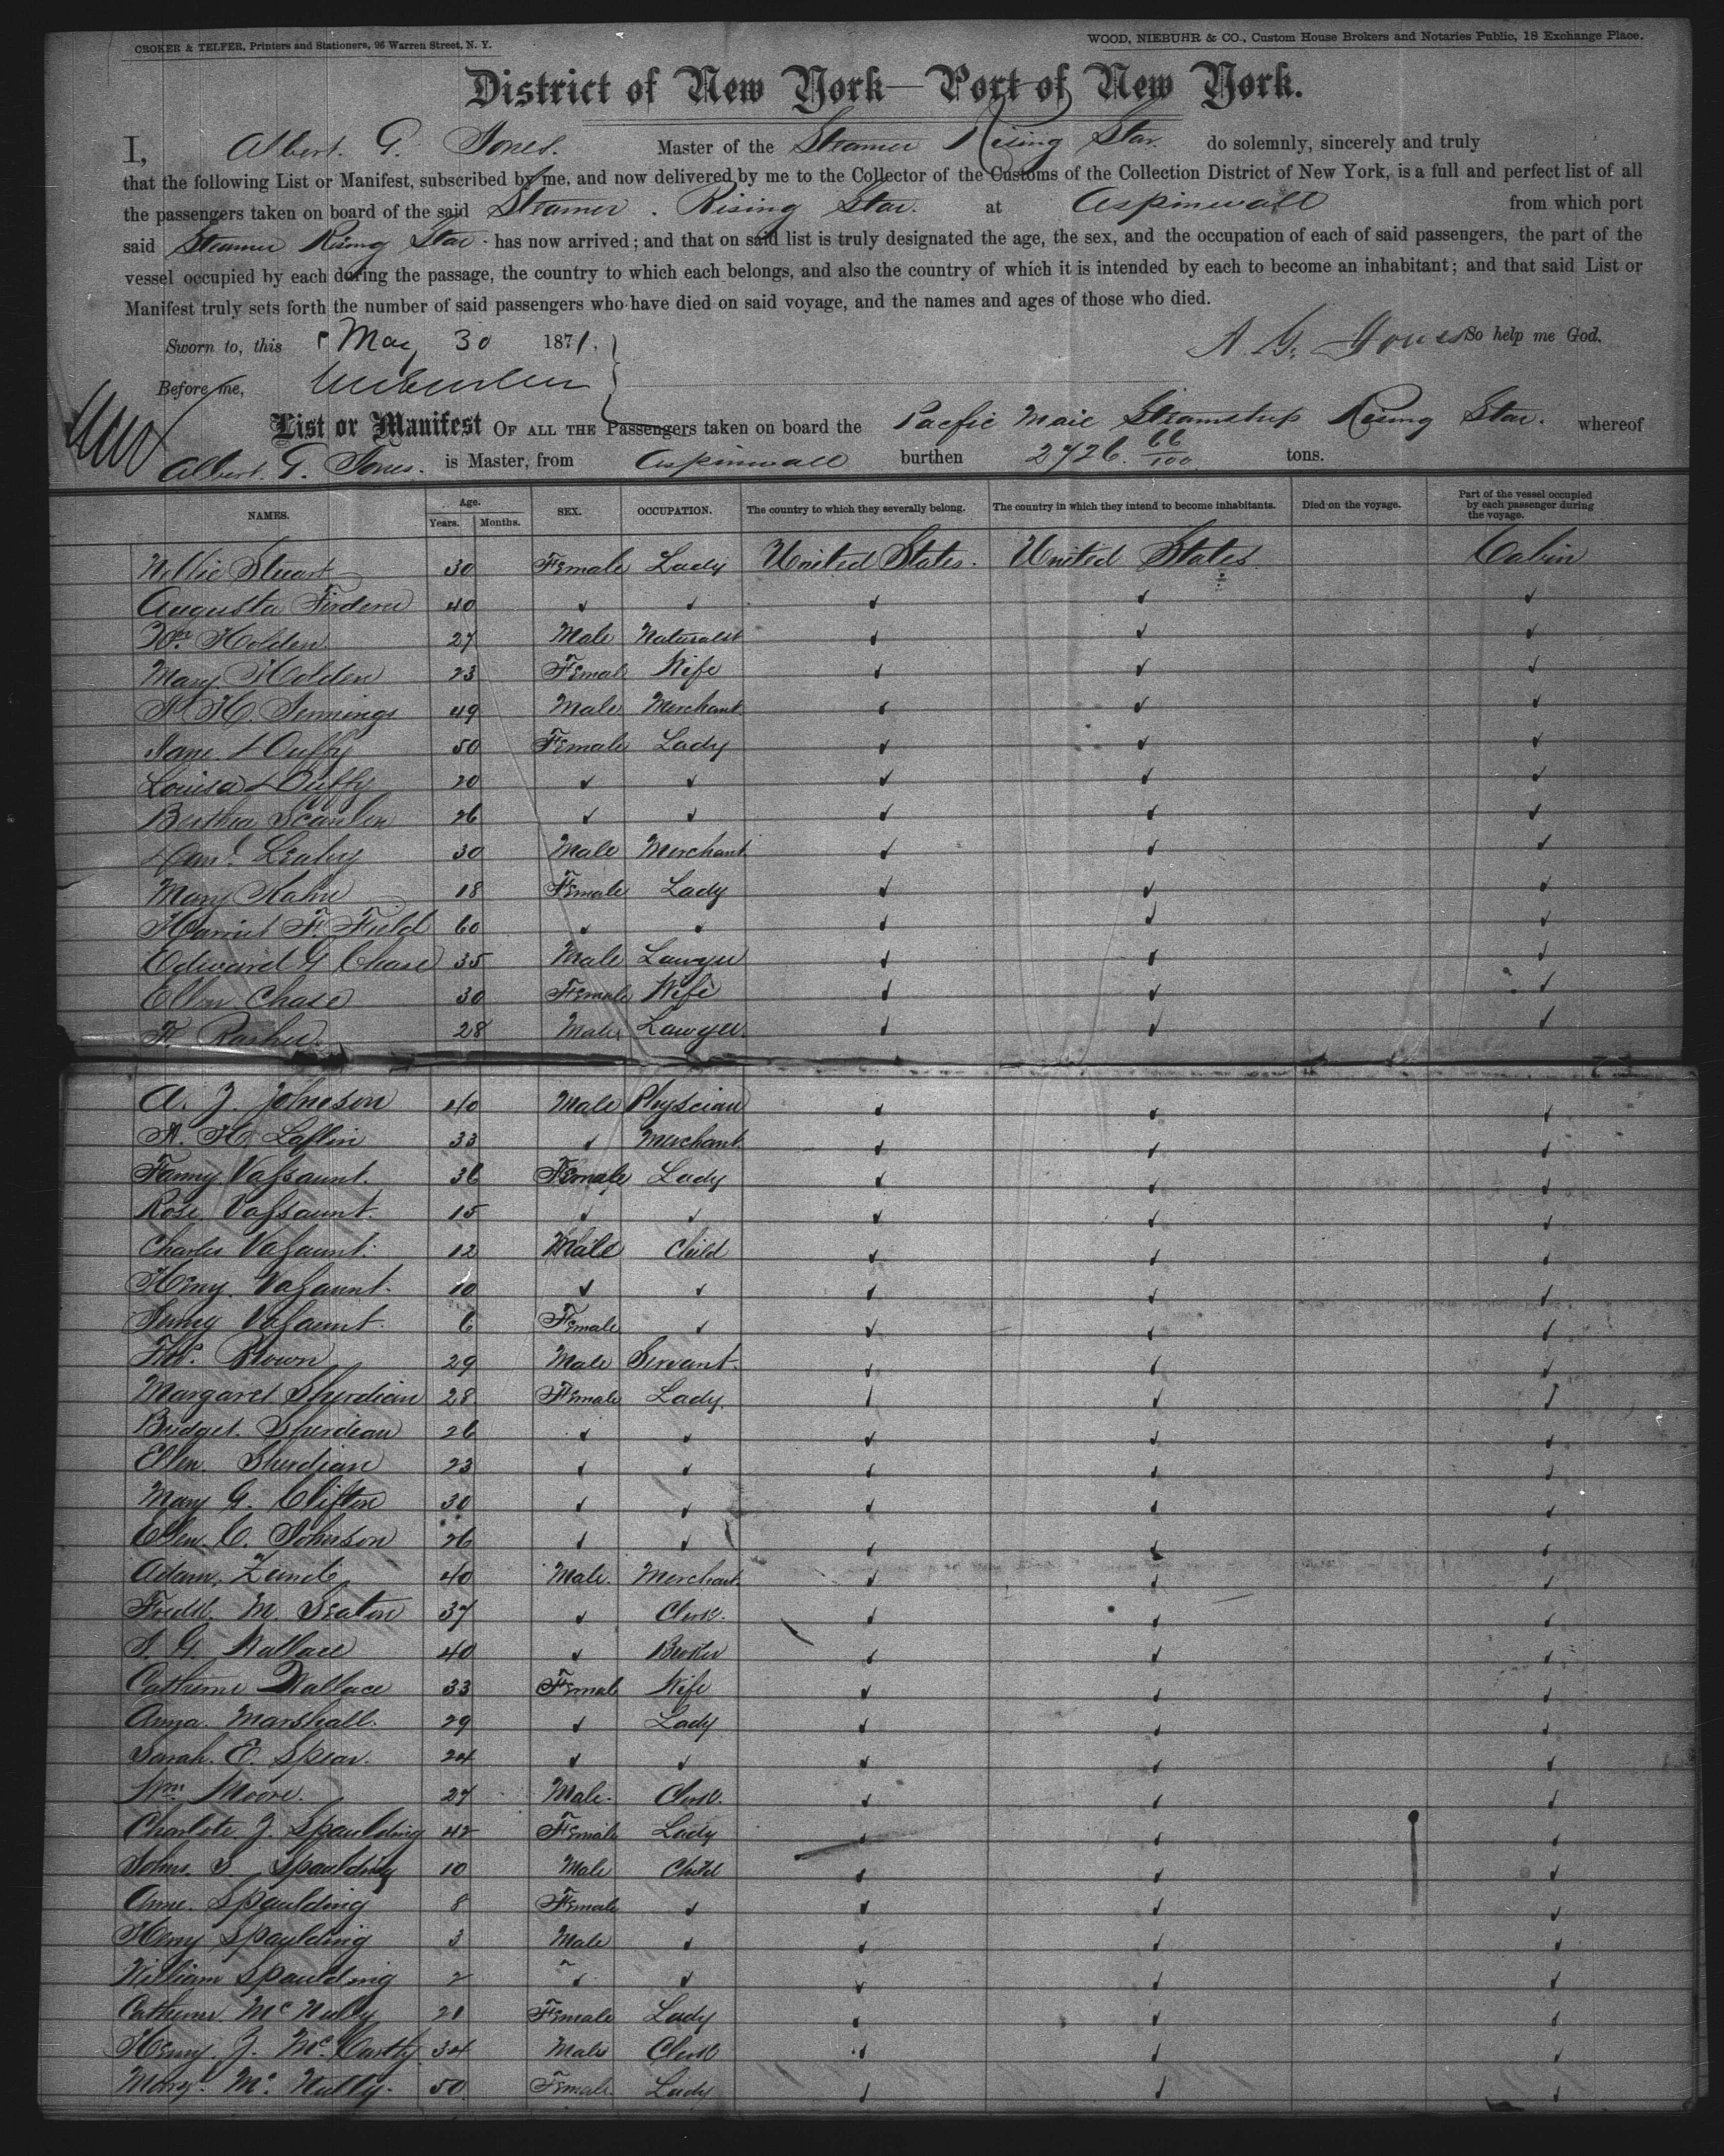 CROKER & TELFER, Printers and Stationers, 96 Warren Street, N. Y.
WOOD, NIEBUHR & CO., Custom House Brokers and Notaries Public, 18 Exchange Place.
District of New York—Port of New York.
I, Albert. G. Jones. Master of the Steamer Rising Star. do solemnly, sincerely and truly
that the following List or Manifest, subscribed by me, and now delivered by me to the Collector of the Customs of the Collection District of New York, is a full and perfect list of all
the passengers taken on board of the said Steamer. Rising Star. at Aspinwall from which port
said Steamer Rising Star has now arrived; and that on said list is truly designated the age, the sex, and the occupation of each of said passengers, the part of the
vessel occupied by each during the passage, the country to which each belongs, and also the country of which it is intended by each to become an inhabitant; and that said List or
Manifest truly sets forth the number of said passengers who have died on said voyage, and the names and ages of those who died.
Sworn to, this May 30 1871. A. G. Jones So help me God.
Before me,
List or Manifest OF ALL THE Passengers taken on board the Pacfic Mail Steamship Rising Star. whereof
Albert. G. Jones. is Master, from Aspinwall burthen 2726. 66/100 tons.
NAMES. Age. Years. Months. SEX. OCCUPATION. The country to which they severally belong. The country in which they intend to become inhabitants. Died on the voyage. Part of the vessel occupied by each passenger during the voyage.
Nellie Stuart 30 Female Lady United States. United States Cabin
Augusta 40 ✓ ✓ ✓ ✓ ✓
Wm. Holden. 27 Male Naturalist ✓ ✓ ✓
Mary Holden 23 Female Wife ✓ ✓ ✓
H. Jennings 49 Male Merchant ✓ ✓ ✓
Jane Duffy 50 Female Lady ✓ ✓ ✓
Louisa Duffy 20 ✓ ✓ ✓ ✓ ✓
Bertha Scanlon 26 ✓ ✓ ✓ ✓ ✓
Danl. Leahy 30 Male Merchant ✓ ✓ ✓
Mary Kahn 18 Female Lady ✓ ✓ ✓
Harriet F. Field 60 ✓ ✓ ✓ ✓ ✓
Edward G Chase 35 Male Lawyer ✓ ✓ ✓
Ellen Chase 30 Female Wife ✓ ✓ ✓
28 Male Lawyer. ✓ ✓ ✓
A. J. Johnson 40 Male Physcian ✓ ✓ ✓
A. H. Laflin 33 ✓ Merchant. ✓ ✓ ✓
Fanny Vassaunt. 36 Female Lady ✓ ✓ ✓
Rose Vassaunt. 15 ✓ ✓ ✓ ✓ ✓
Charles Vasaunt. 12 Male Child ✓ ✓ ✓
Henry. Vasaunt. 10 ✓ ✓ ✓ ✓ ✓
Jenny Vasaunt. 6 Female ✓ ✓ ✓ ✓
Thos. Brown 29 Male Servant. ✓ ✓ ✓
Margaret Sherdian 28 Female Lady. ✓ ✓ ✓
Bridget. Sherdian 26 ✓ ✓ ✓ ✓ ✓
Ellen. Sherdian 23 ✓ ✓ ✓ ✓ ✓
Mary G. Clifton 30 ✓ ✓ ✓ ✓ ✓
Ellen. C. Johnson 26 ✓ ✓ ✓ ✓ ✓
Adam. 40 Male. Merchant. ✓ ✓ ✓
Fredk. M. Seaton 37 ✓ Clerk. ✓ ✓ ✓
S. G. Wallace 40 ✓ Broker ✓ ✓ ✓
Catherine Wallace 33 Female Wife ✓ ✓ ✓
Anna. Marshall. 29 ✓ Lady ✓ ✓ ✓
Sarah. E. Spear. 24 ✓ ✓ ✓ ✓ ✓
Wm. Moore. 27 Male. Clerk. ✓ ✓ ✓
Charlote. J. Spaulding 42 Female Lady ✓ ✓ ✓
John. S. Spaulding 10 Male Child ✓ ✓ ✓
Anne. Spaulding 8 Female ✓ ✓ ✓ ✓
Henry Spaulding 3 Male ✓ ✓ ✓ ✓
William Spaulding 2 ✓ ✓ ✓ ✓ ✓
Catherine. Mc Nully 21 Female Lady ✓ ✓ ✓
Henry. J. Mc. Carthy 34 Male Clerk ✓ ✓ ✓
Margt. Mc. Nully. 50 Female. Lady ✓ ✓ ✓